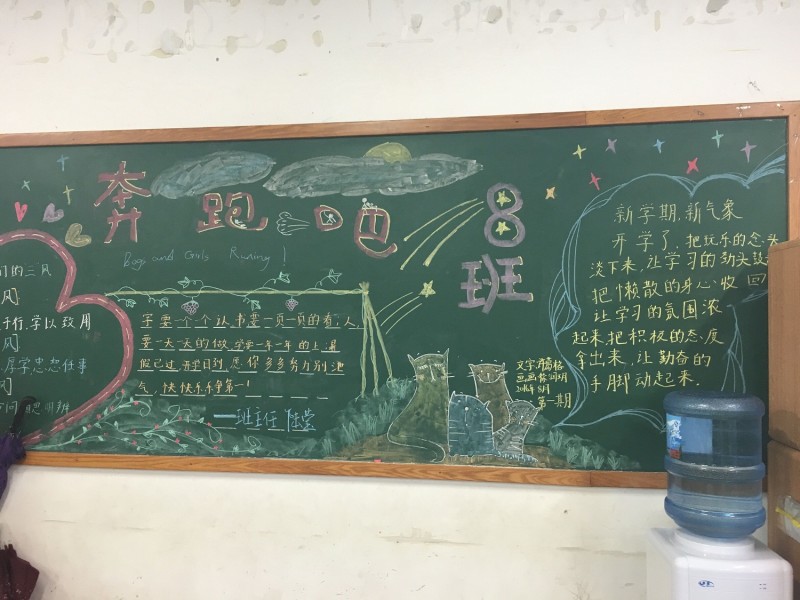 奔跑吧8班
Boys and Girls Runing!
们的三风
风
于行,学以致用
风
厚学忠志任事
风
问 聪 明辨
字要一个个认,书要一页一页的看,人
要一天一天的做,学要一年一年的上,温
假已过,开学日到,愿你多多努力别泄
气,快快乐乐争第一!
——班主任
新学期,新气象
开学了,把玩乐的念头
淡下来,让学习的劲头鼓
把懒散的身心收回
让学习的氛围浓
起来,把积极的态度
拿出来,让勤奋的
手脚动起来.
文字:
画画:
第一期